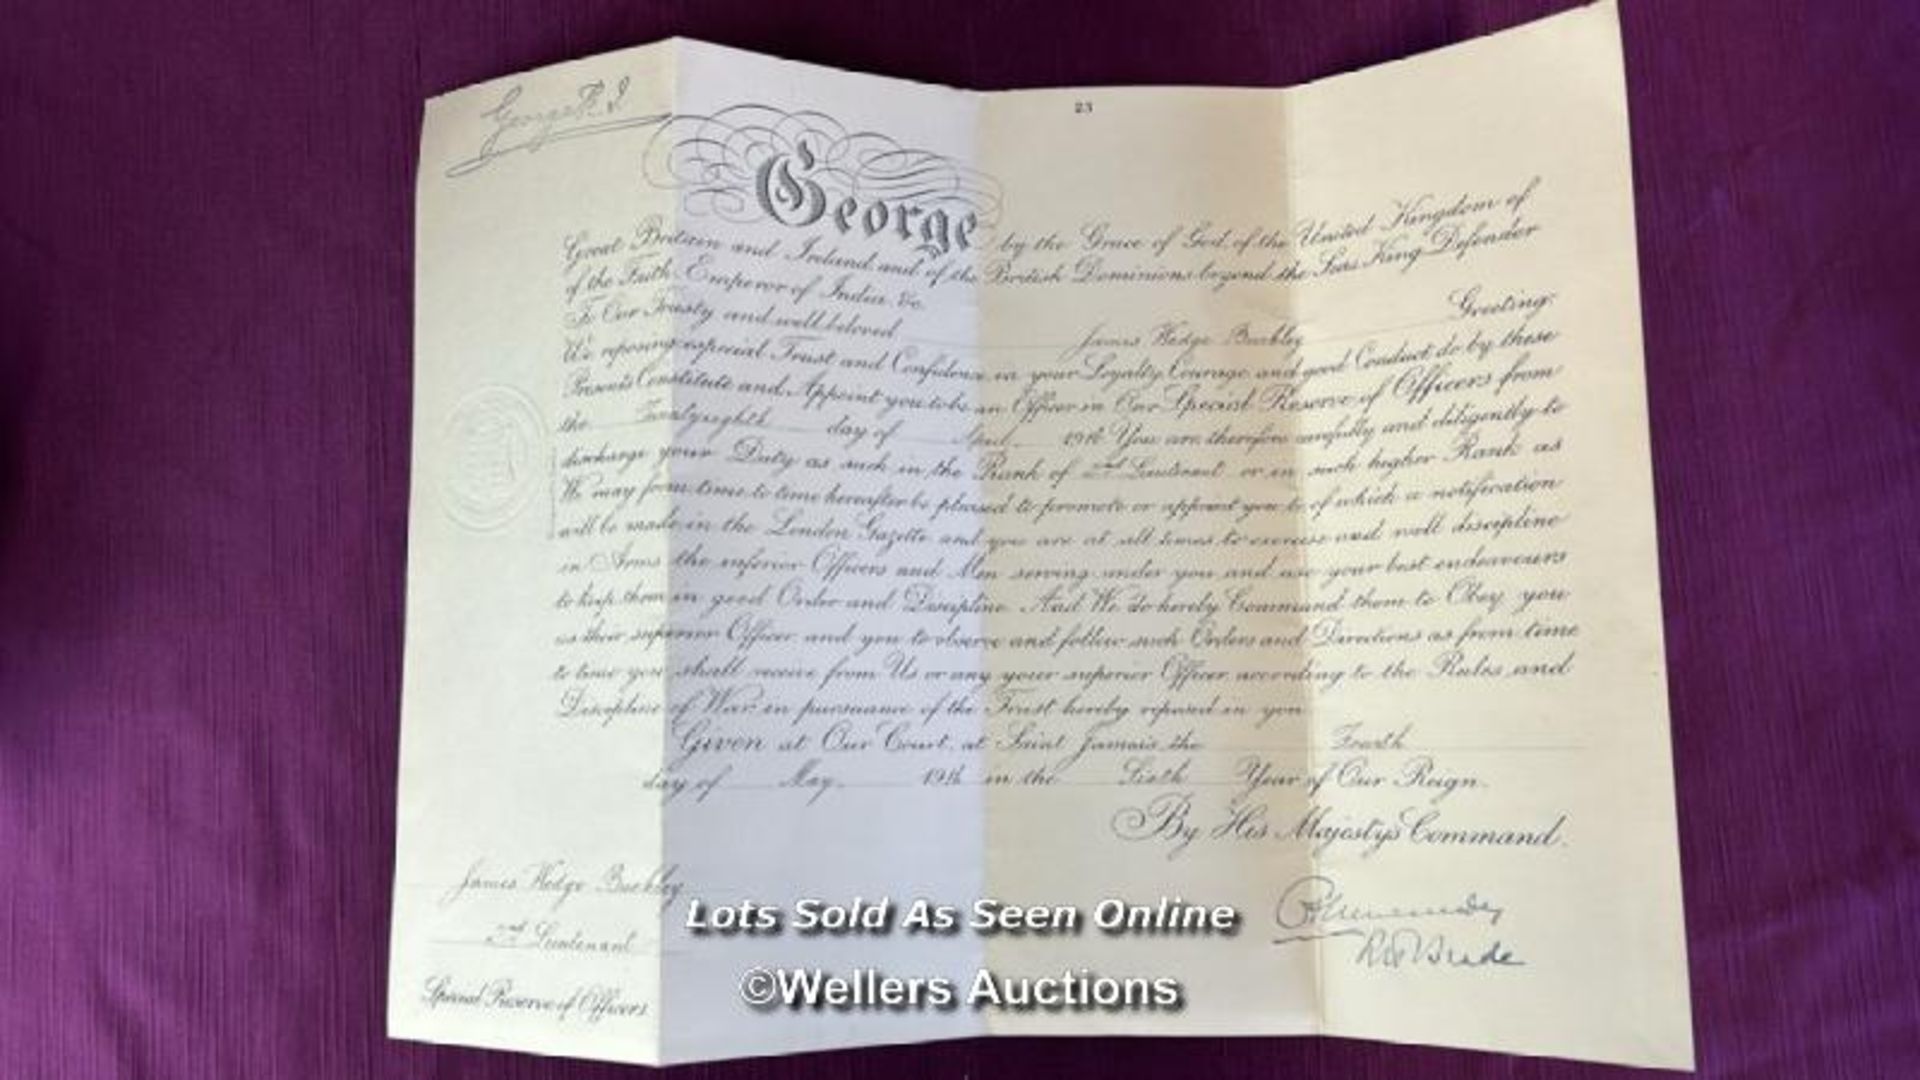 George R.I.
23
George by the Grace of God, of the United Kingdom of
Great Britain and Ireland and of the British Dominions beyond the Seas King, Defender
of the Faith, Emperor of India, &c.
To Our Trusty and well beloved James Wedge Buckley Greeting:
We reposing especial Trust and Confidence in your Loyalty, Courage, and good Conduct, do by these
Presents Constitute and Appoint you to be an Officer in Our Special Reserve of Officers from
the Twentyeighth day of April 1916. You are therefore carefully and diligently to
discharge your Duty as such in the Rank of 2nd Lieutenant or in such higher Rank as
We may from time to time hereafter be pleased to promote or appoint you to, of which a notification
will be made in the London Gazette, and you are at all times to exercise and well discipline
in Arms the inferior Officers and Men serving under you and use your best endeavours
to keep them in good Order and Discipline. And We do hereby Command them to Obey you
as their superior Officer, and you to observe and follow such Orders and Directions as from time
to time you shall receive from Us, or any your superior Officer, according to the Rules and
Discipline of War, in pursuance of the Trust hereby reposed in you.
Given at Our Court, at Saint James's, the Fourth
day of May, 1916 in the Sixth Year of Our Reign.
By His Majesty's Command.
James Wedge Buckley
2nd Lieutenant
Special Reserve of Officers
Lots Sold As Seen Online
©Wellers Auctions
R H Brade